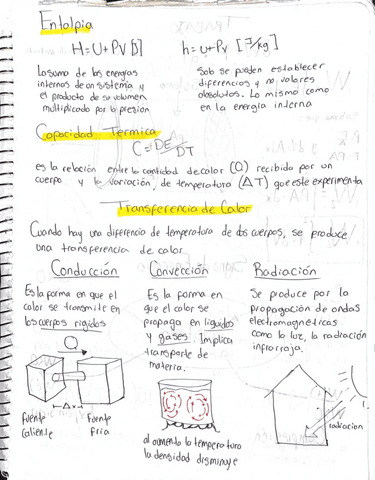 Entalpia
H=U+PV [J]    h=u+Pv [J/kg]
La suma de las energias
internas de un sistema y
el producto de su volumen
multiplicado por la presion
Solo se pueden establecer
diferencias y no valores
absolutos. Lo mismo como
en la energia interna
Capacidad Térmica
C=DE/DT
es la relación entre la cantidad de calor (Q) recibida por un
cuerpo y la variación de temperatura (ΔT) que este experimenta
Transferencia de Calor
Cuando hay una diferencia de temperatura de dos cuerpos, se produce
una transferencia de calor
Conducción
Es la forma en que el
calor se transmite en
los cuerpos rigidos
Q
Δx
Fuente
Caliente
Fuente
fria
Convección
Es la forma en
que el calor se
propaga en liquidos
y gases. Implica
transporte de
materia.
al aumento la temperatura
la densidad disminuye
Radiación
Se produce por la
propagación de ondas
electromagnéticas
como la luz, la radiación
infrarroja.
radiacion